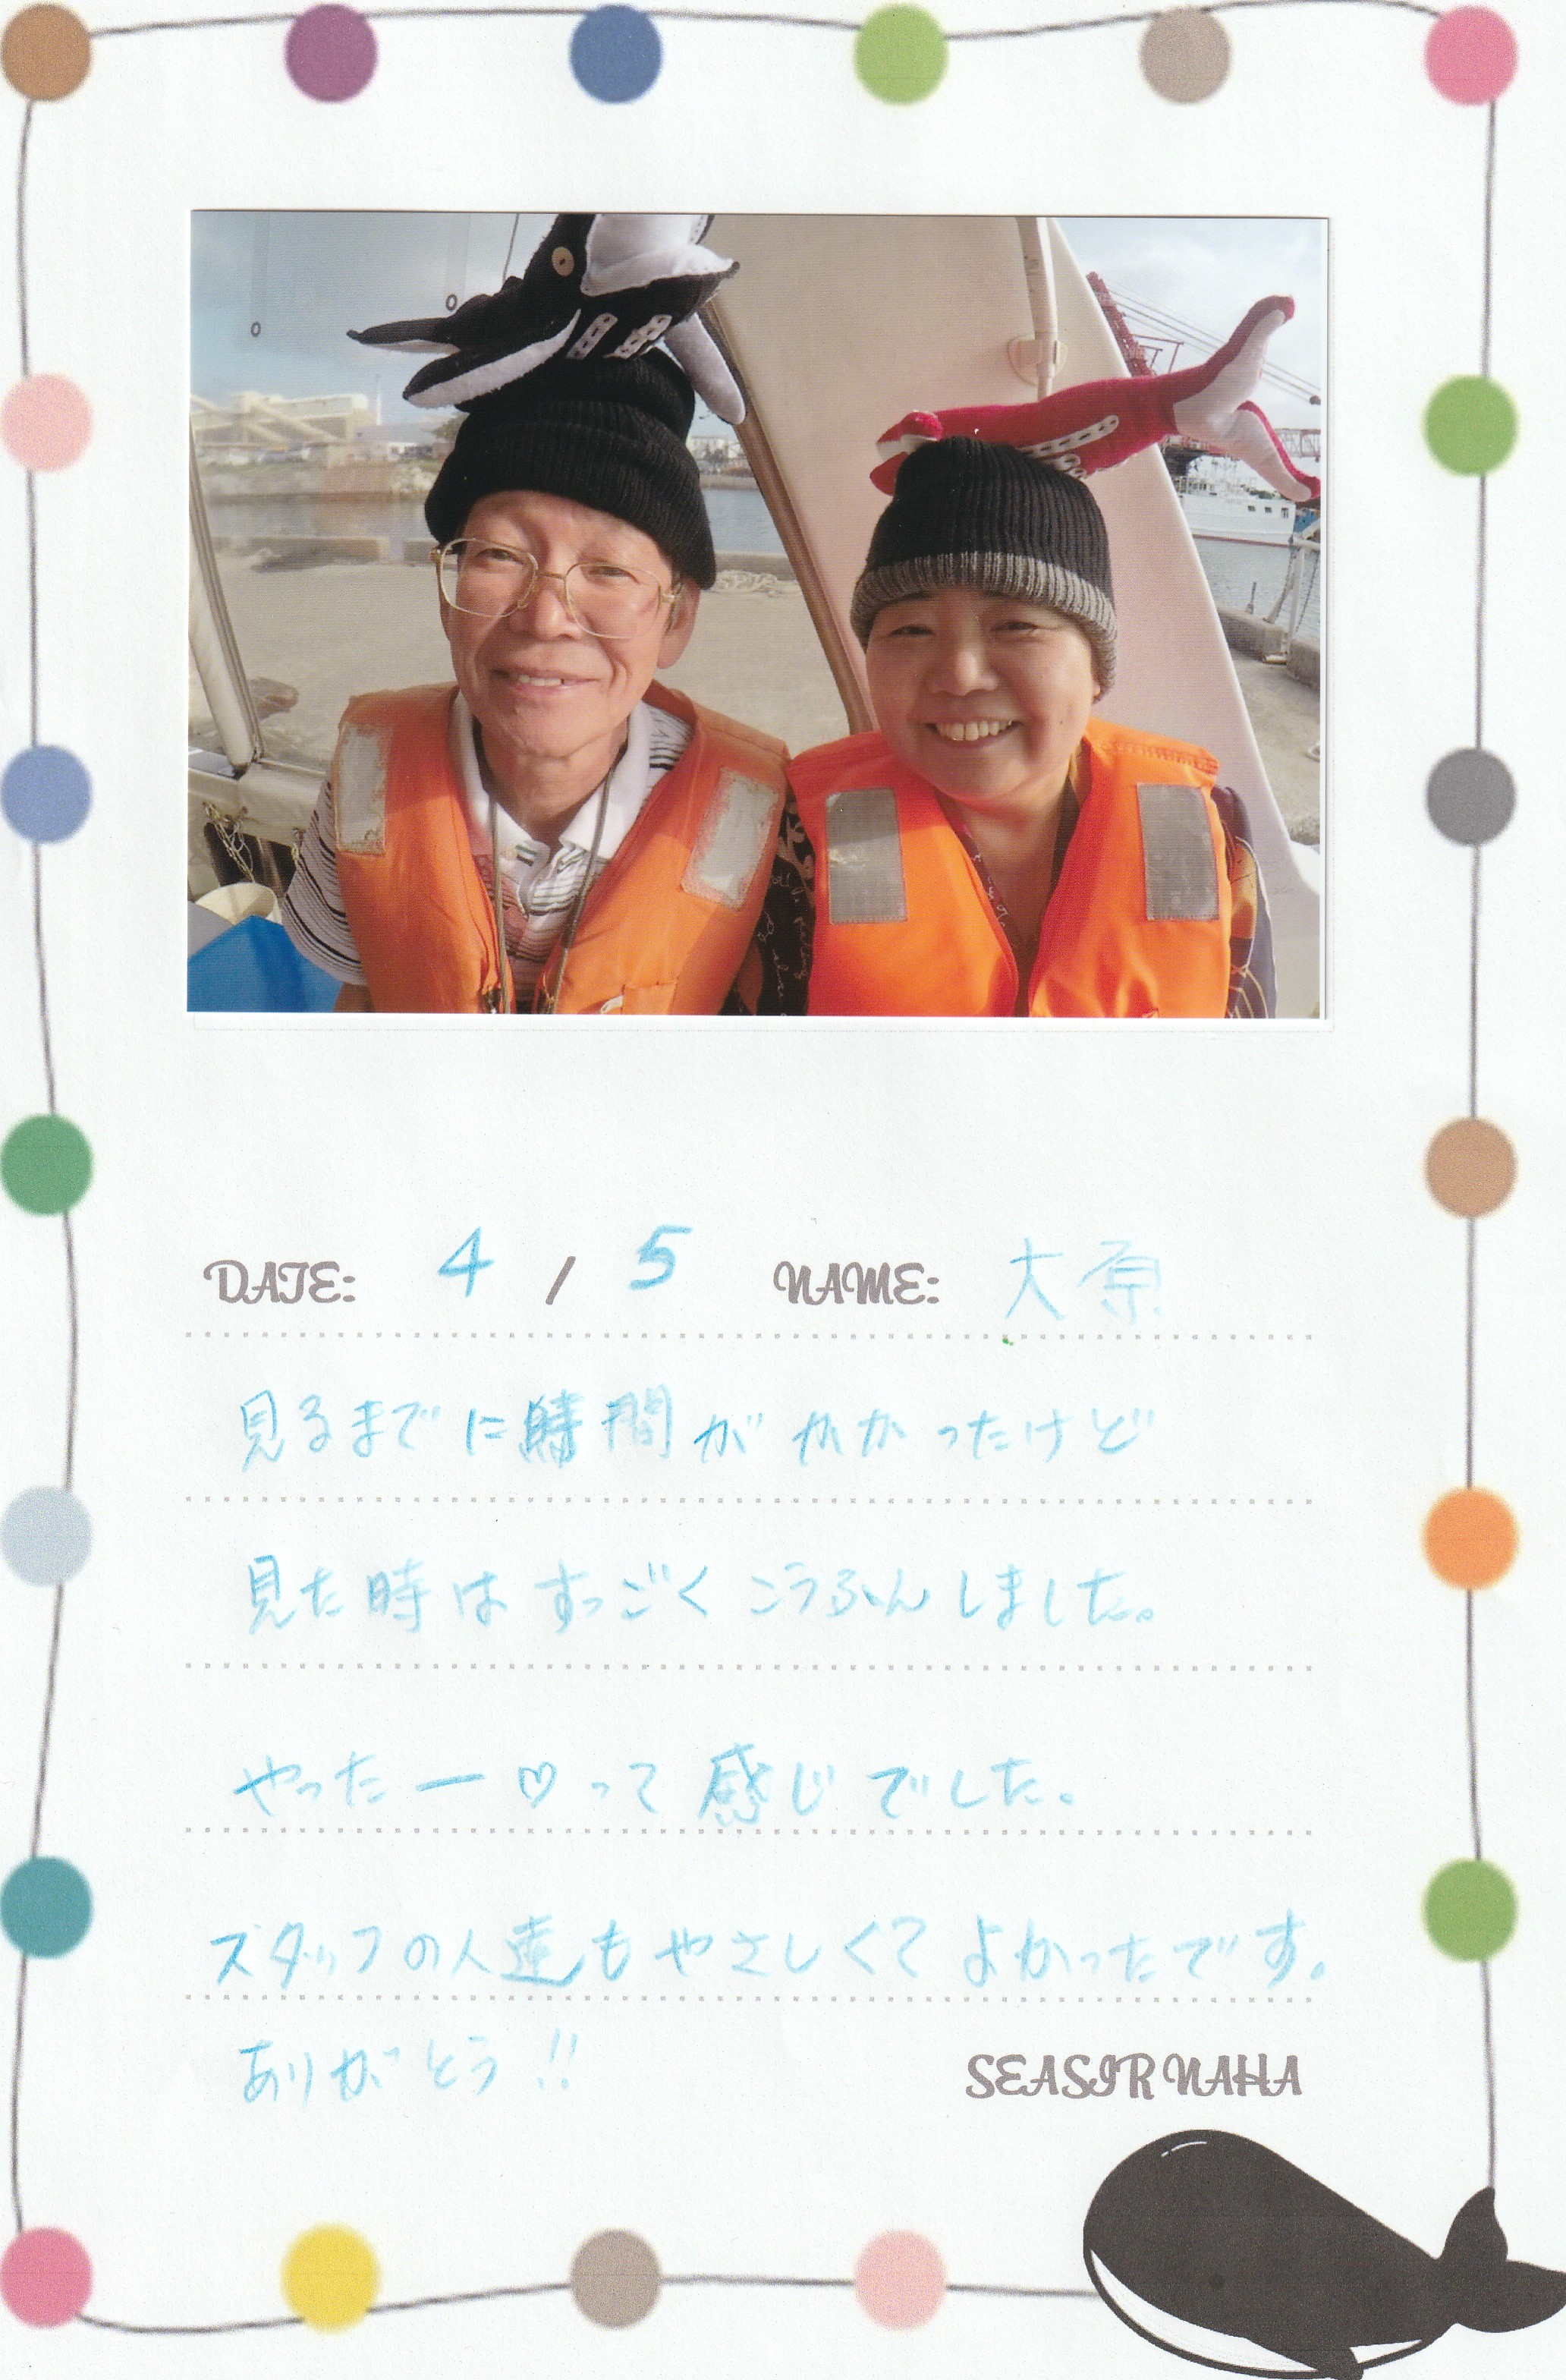 DATE: 4 / 5 NAME: 大原
見るまでに時間がかかったけど
見た時はすっごくこうふんしました。
やったー♡って感じでした。
スタッフの人達もやさしくてよかったです。
ありがとう!!
SEASIR NAHA